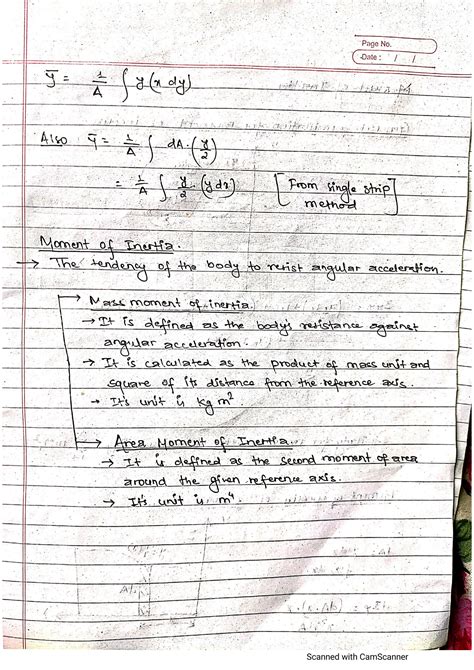 Page No.
Date : / /
ȳ = 1/A ∫ y (x dy)
Also ȳ = 1/A ∫ dA. (y/2)
= 1/A ∫ y/2 . (y dx) [From single strip method]
Moment of Inertia.
→ The tendency of the body to resist angular acceleration.
→ Mass moment of inertia.
→ It is defined as the body's resistance against
angular acceleration.
→ It is calculated as the product of mass unit and
square of its distance from the reference axis.
→ It's unit is kg m²
→ Area Moment of Inertia.
→ It is defined as the second moment of area
around the given reference axis.
→ It's unit is m⁴.
Scanned with CamScanner